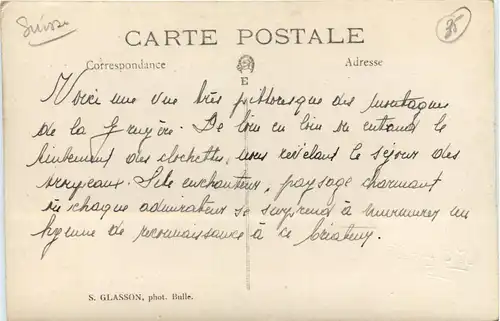 Suisse
35
CARTE POSTALE
Correspondance
Adresse
E
Voici une vue très pittoresque des montagnes
de la Gruyère. De loin en loin on entend le
tintement des clochettes, nous révélant le séjour des
troupeaux. Site enchanteur, paysage charmant
où chaque admirateur se surprend à murmurer un
hymne de reconnaissance à ce Créateur.
S. GLASSON, phot. Bulle.